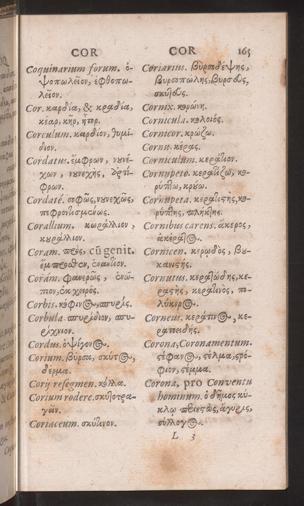 COR
COR 165
Coquinarium forum. ὀ-
ψοπωλεῖον, ἑφθοπω-
λεῖον.
Cor. καρδία, & κραδία,
κέαρ, κῆρ, ἦτορ.
Corculum. καρδίον, θυμί-
διον.
Cordatus. ἔμφρων, νουνέ-
χων, νουνεχὴς,
φρων.
Cordatè. σοφῶς, νουνεχῶς,
πεφρονισμένως.
Corallum. κωράλλιον,
κυράλλιον.
Coram. πρὸς, cũ genit.
ἔμπροθεν, ἐνωπιον.
Corám. φανερῶς, ἐνώ-
πιον,
Corbis. κόφινος,
Corbula. σπυρίδιον, σπυ-
ρίχνιον.
Cordus. ὀψίγονος.
Corium. βύρσα, σκύτος,
δέρμα.
Corij resegmen.
Corium rodere. σκυτοτρα-
γεῖν.
Coriaceum. σκύτινον.
Coriarius. βυρσοδέψης,
βυρσοπώλης, βυρσεὺς,
σκυτεύς.
Cornix. κορώνη.
Cornicula. κολοιός.
Cornicor. κρώζω.
Cornu. κέρας.
Corniculum. κεράτιον.
Cornupeto. κερατίζω, κο-
ρύπτω, κρύω.
Cornupeta. κερατιστὴς, κο-
ρύπτης, πλήκτης.
Cornibus carens. ἄκερος,
ἀκέρατος.
Cornicen. κεραῦλὸς, βυ-
κανιστής.
Cornutus. κερατώδης, κε-
ραστὴς, κεράτινος,

Corneus. κεράτινος, κε-
ρατοειδής.
Corona, Coronamentum.
στέφανος, στέμμα, στέφ-
ιον, στέμμα.
Corona, pro Conventu
hominum. ὁ δῆμος κύ-
κλῳ περιεστὼς, ἄγυρις,
σύλλογος.
L 3